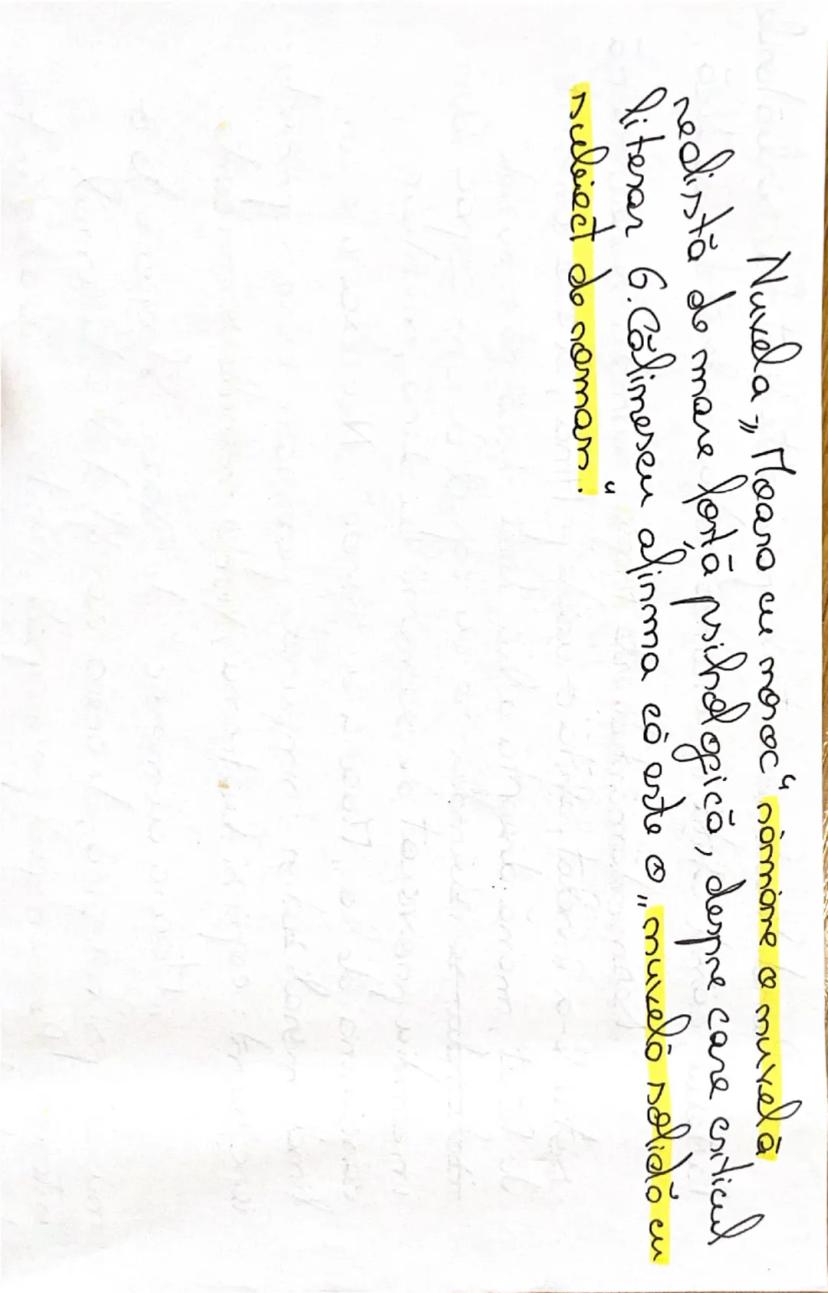 Nuvela „Moara cu noroc“ rămâne o nuvelă
realistă de mare forță psihologică, despre care criticul
literar G. Călinescu afirma că este o „nuvelă solidă cu
subiect de roman.“